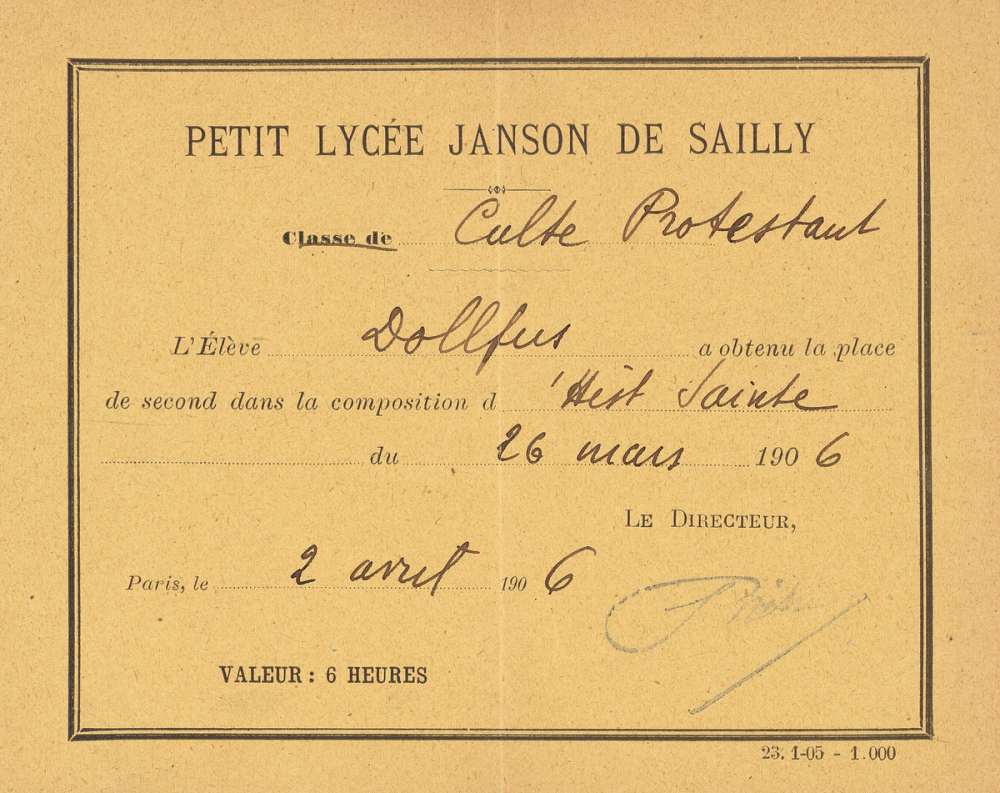 PETIT LYCÉE JANSON DE SAILLY
Classe de Culte Protestant
L'Élève Dollfus a obtenu la place
de second dans la composition d 'Hist Sainte
du 26 mars 1906
LE DIRECTEUR,
Paris, le 2 avril 1906
VALEUR : 6 HEURES
23. 1-05 - 1.000